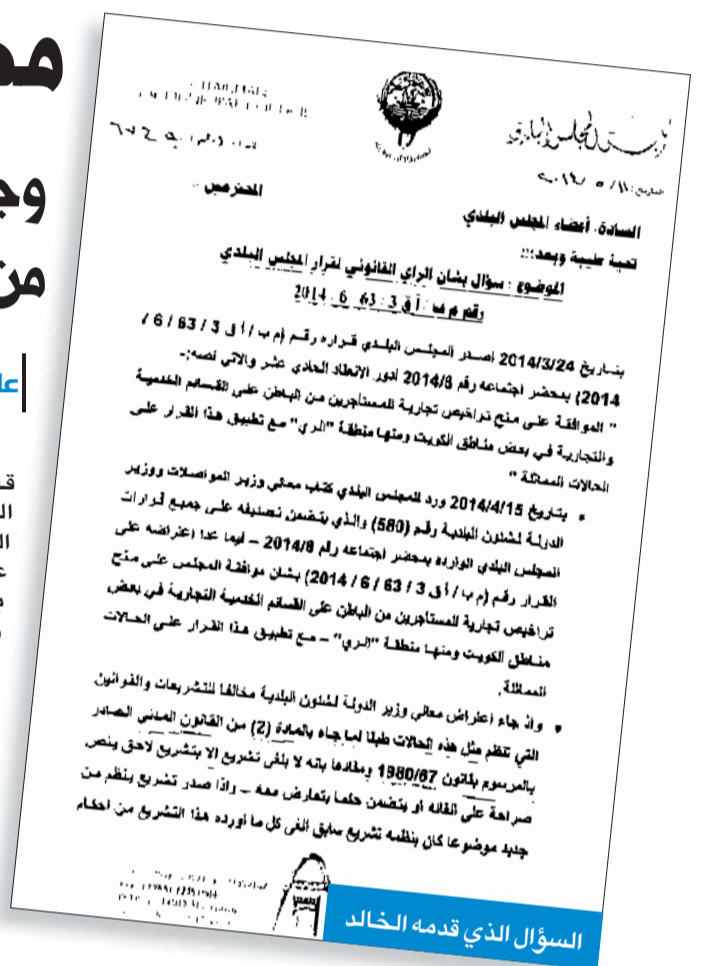 المحترمين
السادة. أعضاء المجلس البلدي
تحية طيبة وبعد؛؛؛
الموضوع : سؤال بشأن الراي القانوني لقرار المجلس البلدي
بتاريخ 2014/3/24 أصدر المجلس البلدي قراره رقم (م ب / أ ق 3 / 63 / 6 /
2014) بمحضر اجتماعه رقم 2014/6 لدور الانعقاد الحادي عشر والاتي نصه:-
" الموافقة على منح تراخيص تجارية للمستأجرين من الباطن على القسائم الخدمية
والتجارية في بعض مناطق الكويت ومنها منطقة "الري" مع تطبيق هذا القرار على
الحالات المماثلة "
• بتاريخ 2014/4/15 ورد للمجلس البلدي كتاب معالي وزير المواصلات ووزير
الدولة لشئون البلدية رقم (580) والذي يتضمن تصديقه على جميع قرارات
المجلس البلدي الوارده بمحضر اجتماعه رقم 2014/6 – فيما عدا اعتراضه على
القرار رقم (م ب / أ ق 3 / 63 / 6 / 2014) بشان موافقة المجلس على منح
تراخيص تجارية للمستأجرين من الباطن على القسائم الخدمية التجارية في بعض
مناطق الكويت ومنها منطقة "الري" – مع تطبيق هذا القرار على الحالات
المماثلة.
• واذ جاء اعتراض معالي وزير الدولة لشئون البلدية مخالفا للتشريعات والقوانين
التي تنظم مثل هذه الحالات طبقا لما جاء بالمادة (2) من القانون المدني الصادر
بالمرسوم بقانون 1980/67 ومفادها بانه لا يلغى تشريع الا بتشريع لاحق ينص
صراحة على الغائه او يتضمن حكما يتعارض معه – واذا صدر تشريع ينظم من
جديد موضوعا كان ينظمه تشريع سابق الغى كل ما اورده هذا التشريع من احكام
السؤال الذي قدمه الخالد
وج
من